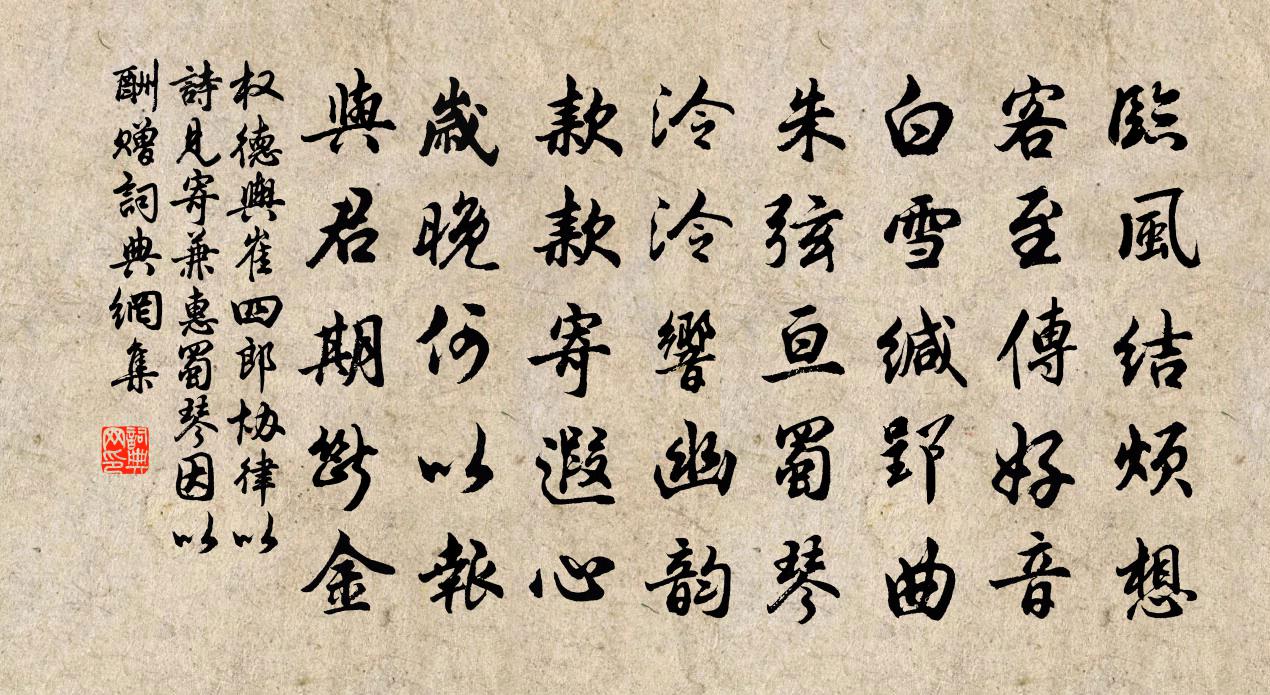 臨風結煩想
客至傳好音
白雪緘郢曲
朱弦亘蜀琴
泠泠響幽韵
款款寄遐心
歲晚何以報
與君期斷金
权德輿崔四郎协律以
詩見寄兼惠蜀琴因以
酬赠詞典網集
詞典网印